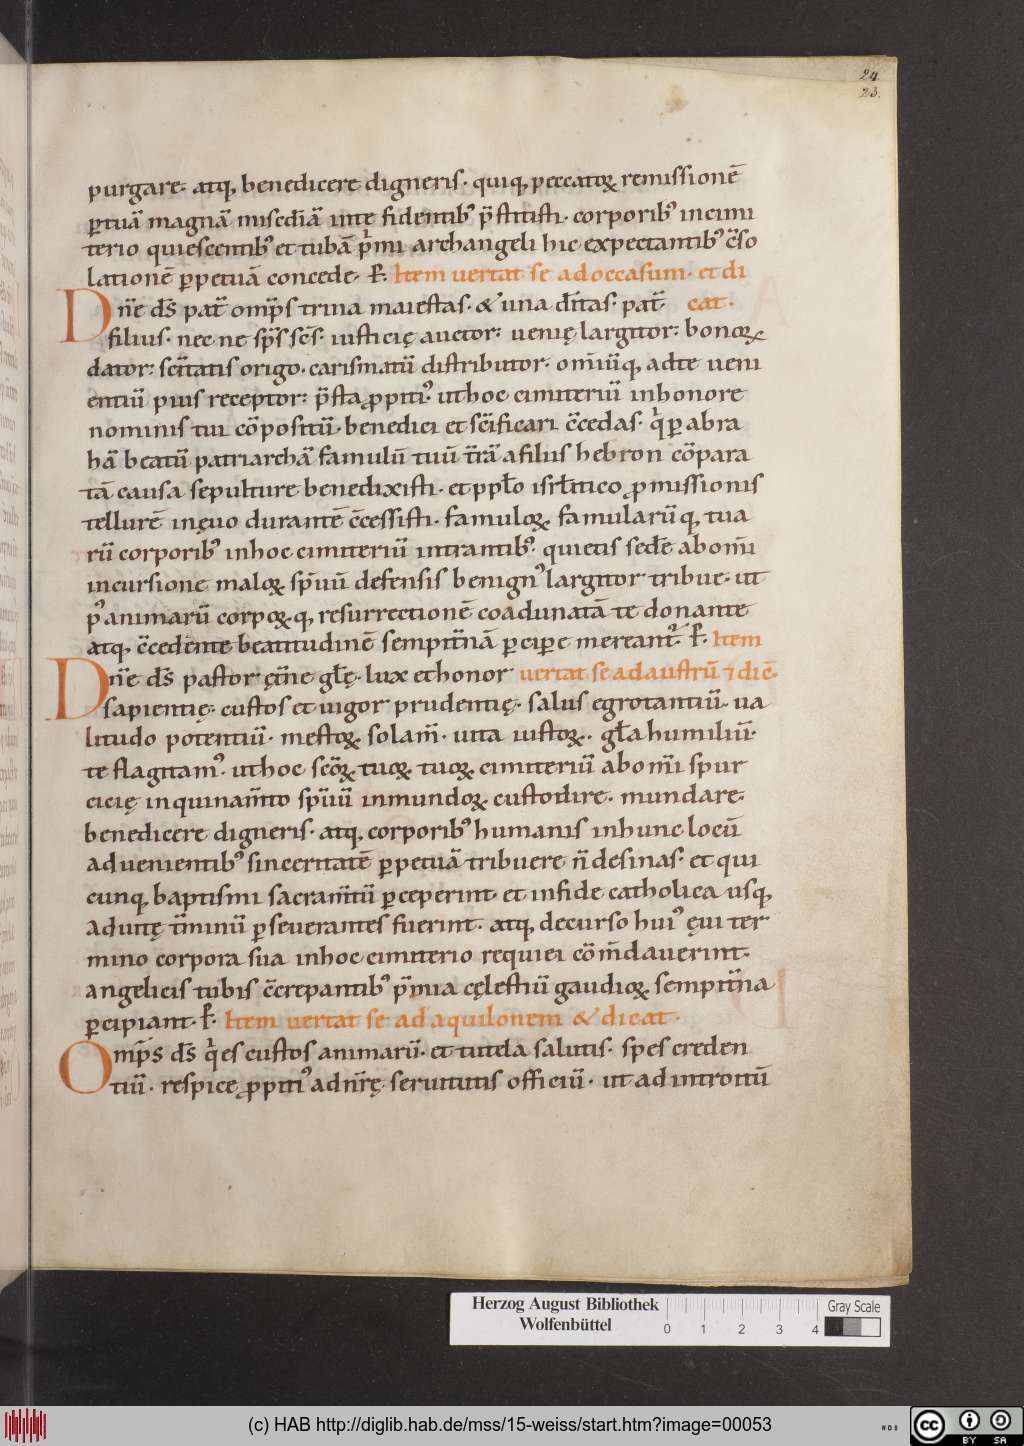 24.
23.
purgare· atq; benedicere digneris· quiq; peccatoꝝ remissionē
ꝑtuā magnā misc̄diā inte fidentibꝰ p̄stitisti· corporibꝰ incimi
terio quiescentibꝰ et tubā pͥmi archangeli hic expectantibꝰ c̄so
lationē ꝑpetuā concede· ꝑ. Item uertat se ad occasum· et di
Dn̄e ds̄ pat̄ omp̄s trina maiestas· & una dīt̄as· pat̄· cat·
filius· nec ne sp̄s sc̄s· iusticię auctor: uenię largitor: bonoꝝ
dator: scīt̄atis origo· carismatū distributor· omīūq; adte ueni
entiū pius receptor: p̄sta ꝓpitiꝰ· uthoc cimiteriū inhonore
nominis tui cōpositū· benedici et scīficari c̄cedas· qͥ ꝑ abra
hā beatū patriarchā famulū tuū t̄rā afilius hebron cōpara
tā causa sepulture benedixisti· et ppl̄o isrl̄itico ꝓmissionis
tellurē inęuo durantē c̄cessisti· famuloꝝ famularūq; tua
rū corporibꝰ inhoc cimiteriū intrantibꝰ· quietis sedē abom̄i
incursione maloꝝ sp̄uū defensis benignꝰ largitor tribue· ut
pꝰ animarū corpoꝝq; resurrectionē coadunatā te donante
atq; c̄cedente beatitudinē sempit̄nā ꝑcipere mereant᷑· ꝑ. Item
Dn̄e ds̄ pastor ęt̄ne gl̄ę· lux et honor uertat se ad austrū ⁊ diē·
sapientię· custos et uigor prudentię· salus egrotantiū· ua
litudo potentiū· mestoꝝ solam̄· uita iustoꝝ· gl̄a humiliū·
te flagitamꝰ· uthoc sc̄oꝝ tuoꝝ tuoꝝ cimiteriū abom̄i spur
cicię inquinam̄to sp̄uū inmundoꝝ custodire· mundare·
benedicere digneris· atq; corporibꝰ humanis inhunc locū
aduenientibꝰ sinceritatē ꝑpetuā tribuere n̄ desinas· et qui
cunq; baptismi sacram̄tū ꝑceperint· et infide catholica usq;
aduitę t̄minū ꝑseuerantes fuerint· atq; decurso huiꝰ ęui ter
mino corpora sua inhoc cimiterio requiei cōm̄dauerint·
angelicis tubis c̄crepantibꝰ p̄mia cęlestiū gaudioꝝ sempit̄na
ꝑcipiant· ꝑ. Item uertat se ad aquilonem & dicat·
Omp̄s ds̄ qͥ es custos animarū· et tutela salutis· spes creden
tiū· respice ꝓpitiꝰ ad nr̄ę seruitutis officiū· ut ad introitū
Herzog August Bibliothek
Wolfenbüttel
0 1 2 3 4
Gray Scale
(c) HAB http://diglib.hab.de/mss/15-weiss/start.htm?image=00053
cc BY SA